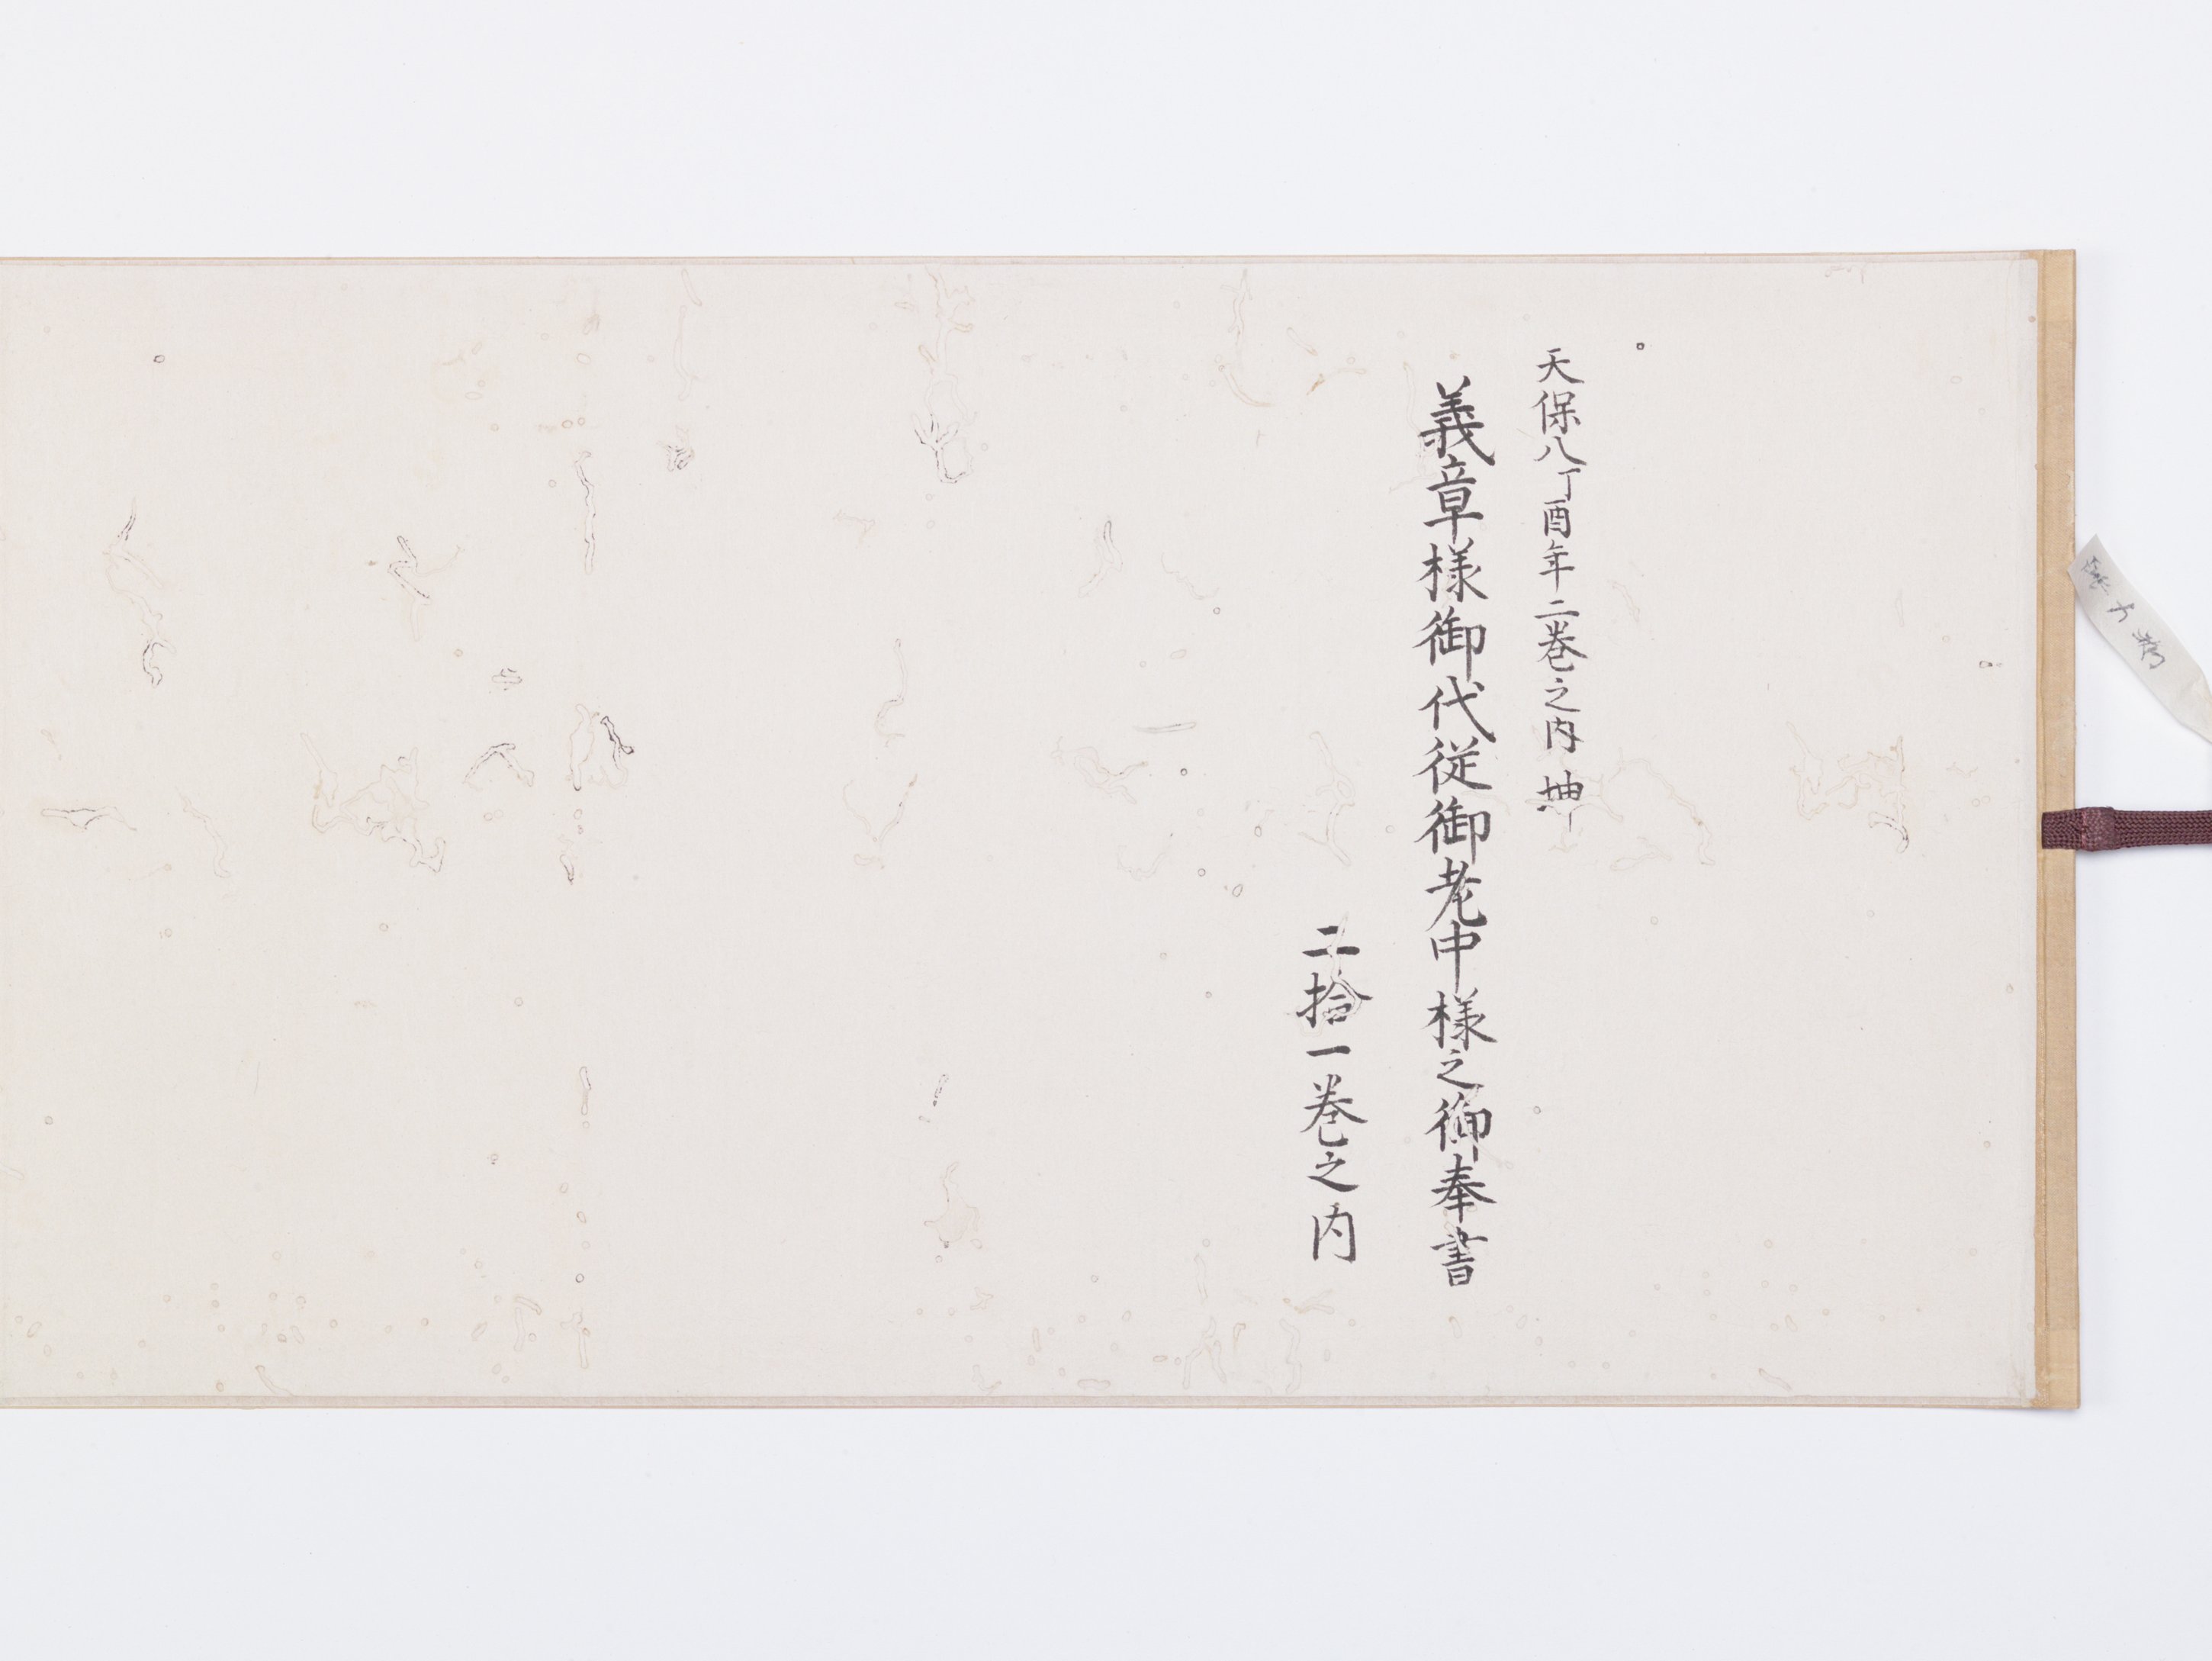 天保八丁酉年二巻之内 坤
義章様御代従御老中様之御奉書
二拾一巻之内